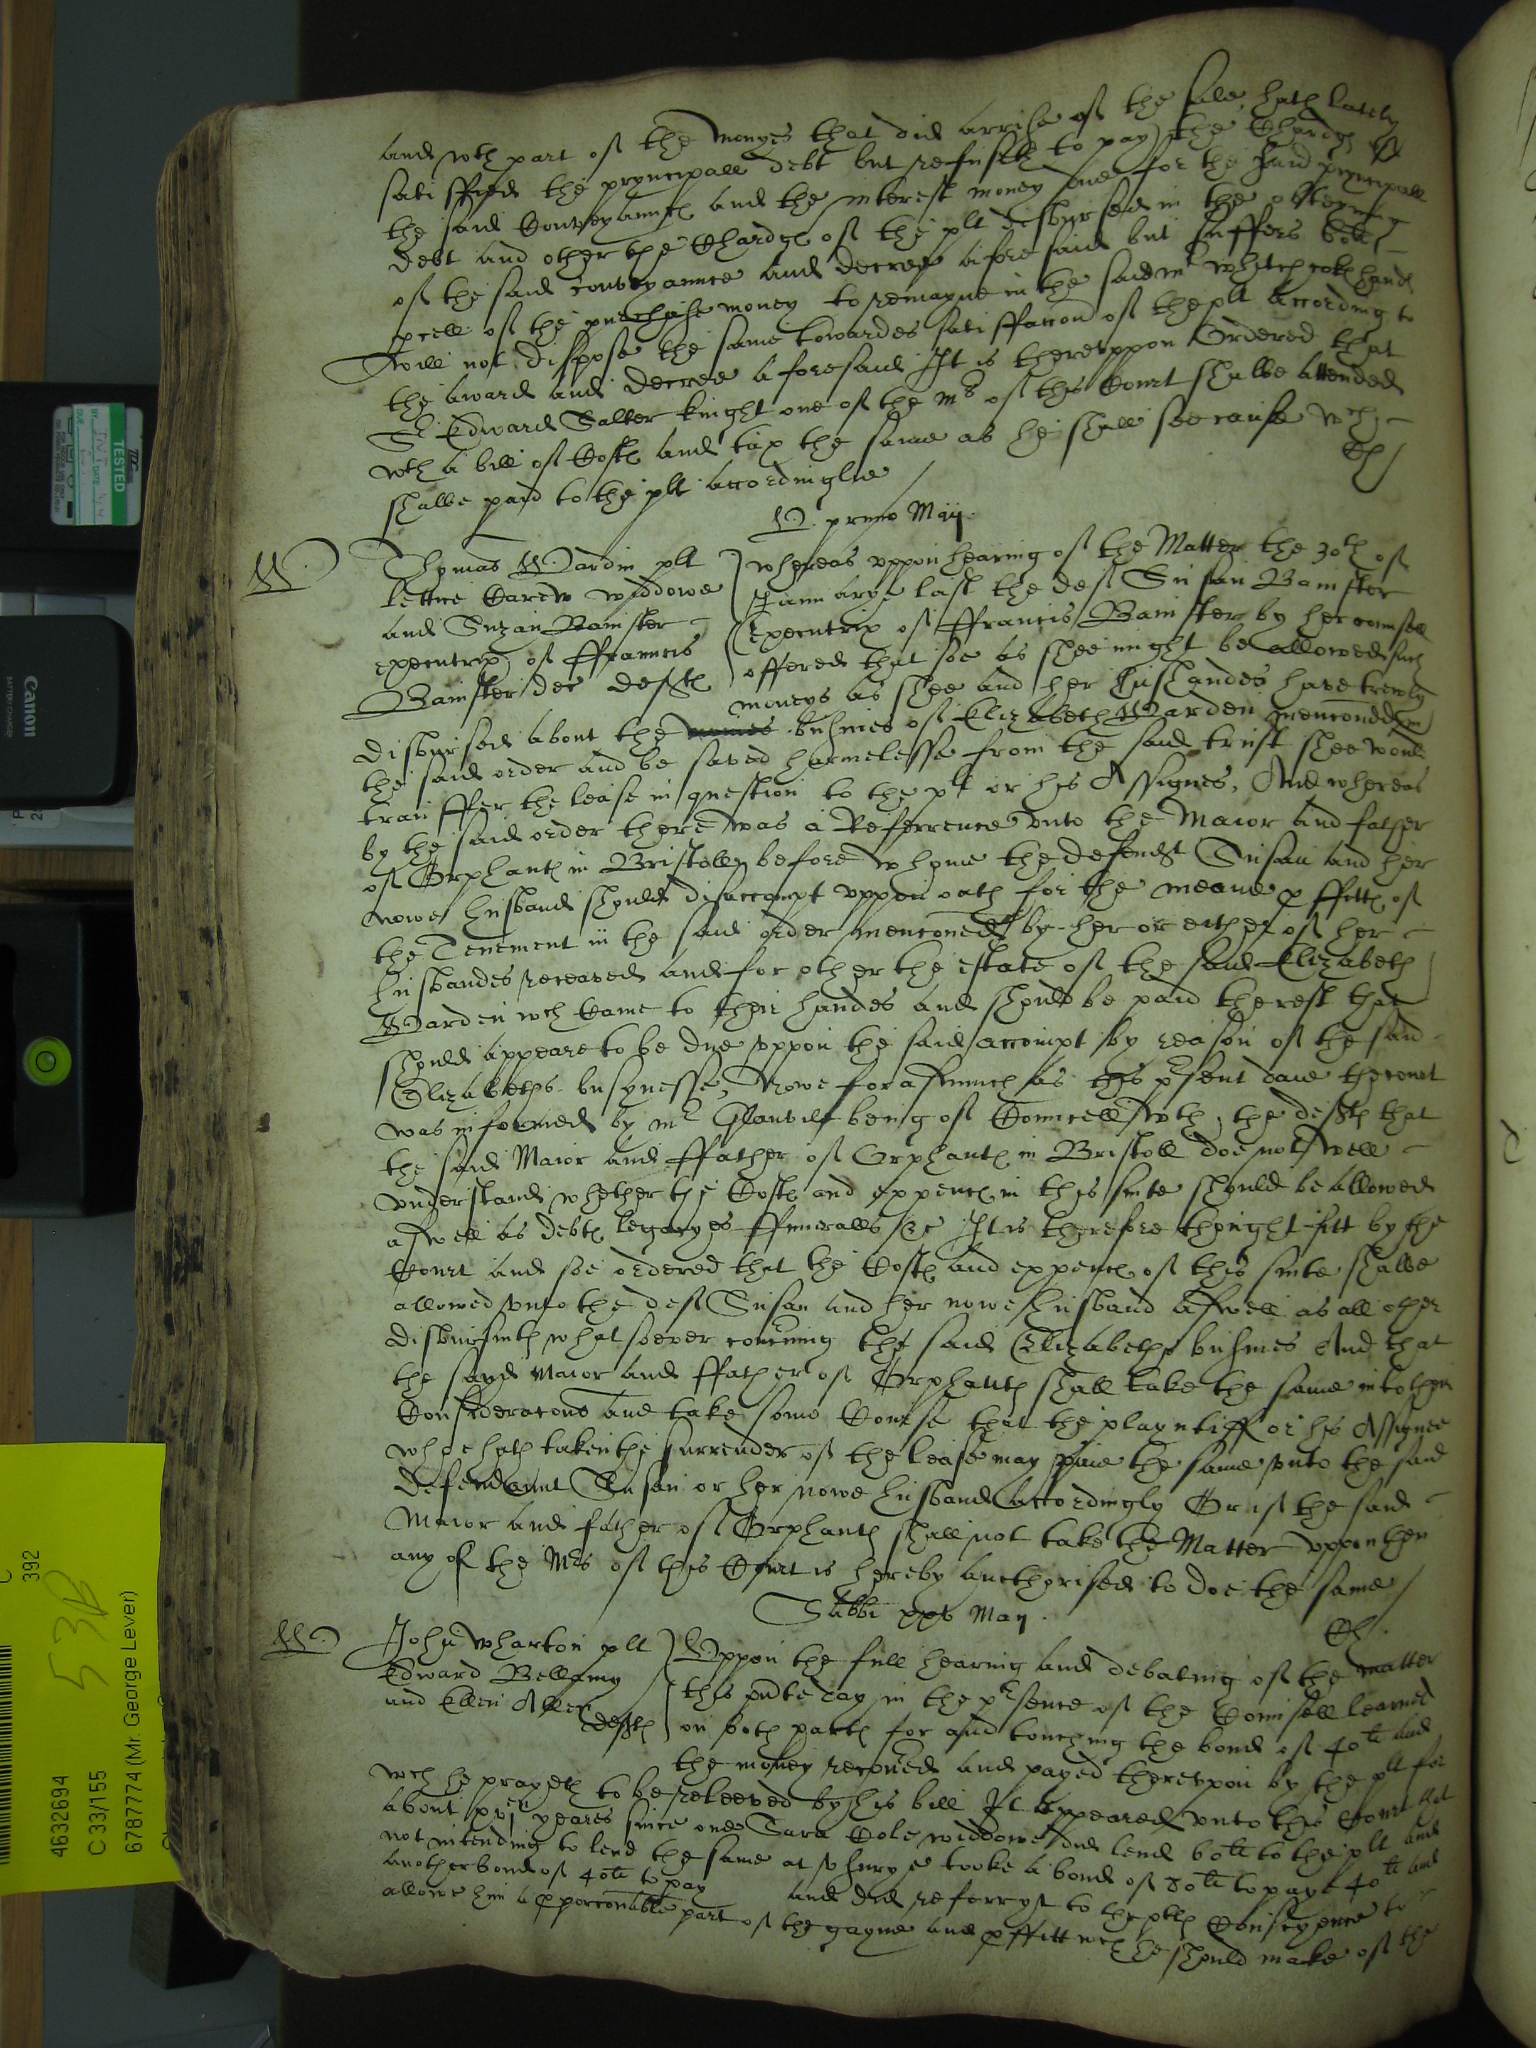 and wth part of the monyes that did arrise of the sale hath lately
satisffied the pryncipall debt but refuseth to pay the Chardge of
the said Conveyaunce and the interest money due for the said pryncipall
debt and other the Chardge of the plt disbursed in the obteyning
of the said conveyaunce and decree aforesaid but suffers
pcell of the purchase money to remayne in the said mr hands
will not dispose the same towardes satisffaccon of the plt according to
the award and decree aforesaid It is thereuppon Ordered that
Sr Edward Salter knight one of the mrs of this Court shalbe attended
wth a bill of Costs and tax the same as he shall see cause wch
shalbe paid to the plt accordinglie
primo Maij
W
Thomas Wardin plt
lettice Carew widdowe
and Suzan Banister
executrix of ffrauncis
Banister dec defts
whereas uppon hearing of the Matter the 30th of
Januarye last the deft Susan Banister
Executrix of ffrancis Banister by her counsell
offered that soe as shee might be allowed such
moneys as shee and her husbandes have trewly
disbursed about the busines of Elizabeth Warden menconed in
the said order and be saved harmelesse from the said trust shee would
transffer the lease in question to the plt or his Assignes, And whereas
by the said order there was a Referrence unto the Maior and father
of Orphants in Bristoll before whome the defendt Susan and her
nowe husband should disaccompt uppon oath for the meane pffitts of
the Tenement in the said order menconed by her or either of her
husbandes receaved and for other the estate of the said Elizabeth
Warden wch came to their handes and should be paid the rest that
should appeare to be due uppon the said accompt by reason of the said
Elizabeths busynesse, Nowe forasmuch as this psent daie the court
was informed by mr Glanvile being of Councell wth the defts that
the said Maior and ffather of Orphants in Bristoll doe not well
understand whether the Costs and expences in this suite should be allowed
aswell as debts legacyes ffuneralls &c It is therefore thought fitt by the
Court and soe ordered that the Costs and expences of this suite shalbe
allowed unto the deft Susan and her nowe husband aswell as all other
disbursmts whatsoever concerning the said Elizabeths busines And that
the sayd Maior and ffather of Orphants shall take the same into their
Consideracons and take some Course that the playntiff or his Assignee
whoe hath taken the surrender of the lease may paie the same unto the said
defendaunt Susan or her nowe husband accordingly Or if the said
Maior and father of Orphants shall not take the Matter uppon them
any of the Mrs of this Court is hereby aucthorised to doe the same
Sabbi May
W
John Wharton plt
Edward Bellamy
and Ellen Allen
defts
Uppon the full hearing and debating of the matter
this pnte day in the psence of the Counsell learned
on both parts for and touching the bond of 40li and
the money recovered and payed thereupon by the plt for
wch he prayeth to be releeved by his bill It appeared unto this Court that
about yeares since one Sara Cole widdowe did lend 60li to the plt and
not intending to lend the same at usurye tooke a bond of 80li to paye 40li and
another bond of 40li to pay and did referr yt to the plts Conscyence to
allowe him a pporconable part of the gayne and pffitt wch he should make of the
TESTED
Canon
BATTERY CHARGER
C
392
53B
4632694
C 33/155
6787774 (Mr. George Lever)